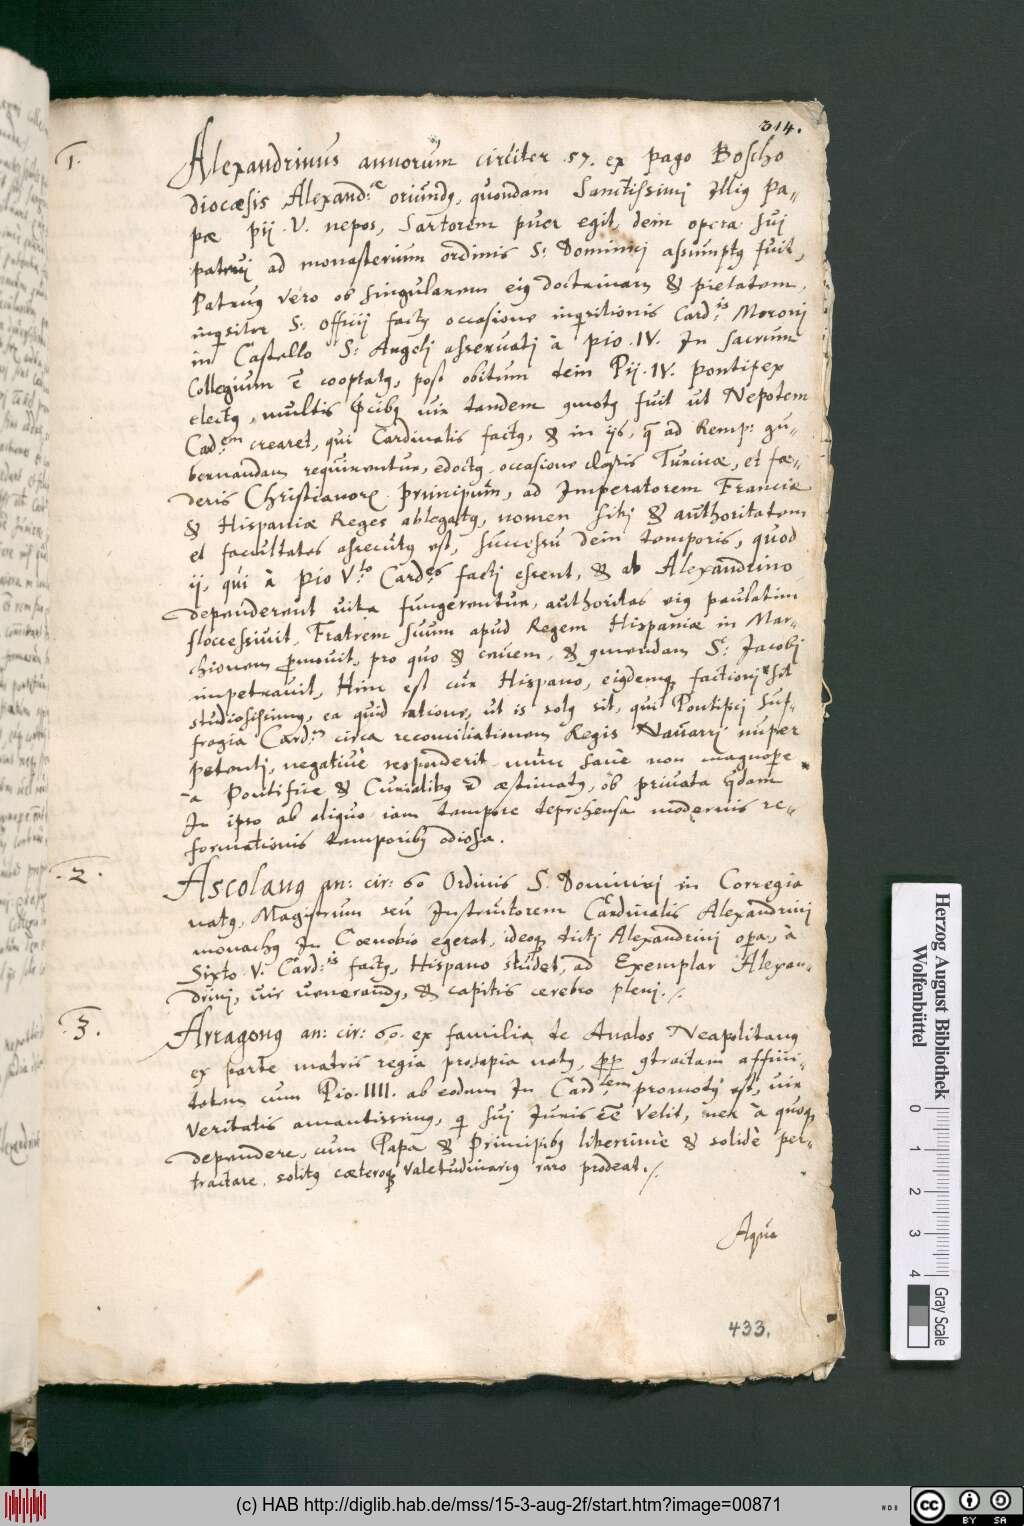 314.
1.
Alexandrinus annorum circiter .57. ex pago Boscho
diocæsis Alexand:æ oriundꝰ, quondam Sanctissimj Illiꝰ Pa„
pæ pij .V. nepos, Sartorem puer egit, dein opera suj
patrui ad monasterium ordinis S: Dominicj assumptꝰ fuit,
Patruus vero ob singularem eiꝰ doctrinam & pietatem,
inqisitor S: officij factꝰ occasione inqisitionis Card:is Moronj
in Castello S: Angelj asseruatj à pio .IV. In sacrum
Collegium ē cooptatꝰ, post obitum dein Pij .IV. pontifex
electꝰ, multis p̄cibꝰ uix tandem ꝯmotꝰ fuit ut Nepotem
Card:em crearet, qui Cardinalis factꝰ, & in ijs, q̄ ad Remp: gu„
bernandam requiruntur, edoctꝰ, occasione classis Turcicæ, et fæ„
deris Christianorꝝ principum, ad Imperatorem Franciæ
& Hispaniæ Reges ablegatꝰ, nomen sibj & authoritatem
et facultates assecutꝰ est, successu dein temporis, quod
ij, qui à pio V.to Card:es factj essent, & ab Alexandrino
dependerent uita fungerentur, authoritas eiꝰ paulatim
floccessiuit, Fratrem suum apud Regem Hispaniæ in Mar„
chionem p̄mouit, pro quo & crucem, & ꝯmendam S: Jacobj
impetrauit, Hinc est cur Hispano, eiꝰdemqꝫ factionj sit
studiosissimꝰ, ea quid ratione, ut is solꝰ sit, qui Pontificj suf„
fragia Card:m circa reconciliationem Regis Nauarrj nuper
petentj, negatiuè responderit nunc sanè non magnopere
à Pontifice & Curialibꝰ æstimatꝰ, ob priuata q̄dam
In ipso ab aliquo iam tempore deprehensa modernis re„
formationis temporibꝰ odiosa.
.2.
Ascolanꝰ an: cir: 60 Ordinis S. Dominicj in Corregio
natꝰ, Magistrum seu Instructorem Cardinalis Alexandrinj
monachꝰ In Cœnobio egerat, ideoqꝫ dictj Alexandrinj opera, à
Sixto .V. Card:is factꝰ, Hispano studet, ad Exemplar Alexan„
drinj, uir uenerandꝰ, & capitis cerebro plenj./.
.3.
Arragonꝰ an: cir: 60. ex familia de Aualos Neapolitanꝰ
ex parte matris regia prosapia natꝰ, ꝯtractam affini„
tatem cum Pio .IIII. ab eodem In Card:lem promotꝰ est, uir
Veritatis amantissimꝰ, qi suj Iuris eē velit, nec à quoqꝫ
dependere, cum Papa & Principibꝰ liberrimè & solidè per„
tractare solitꝰ cæteroqꝫ Valetudinariꝰ raro prodeat./.
Aqua
433.
Herzog August Bibliothek
Wolfenbüttel
0 1 2 3 4
Gray Scale
(c) HAB http://diglib.hab.de/mss/15-3-aug-2f/start.htm?image=00871
WDB
CC BY SA